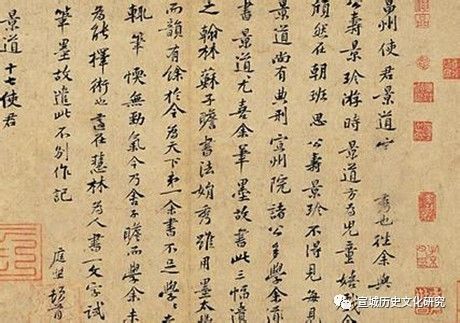 州使君景道 秀也往余與
公壽景珍游時景道方為兒童嬉戲今
頎然在朝班思公壽景珍不得見每見
景道尚有典刑宣州院諸公多學余
書景道尤喜余筆墨故書此三幅遺
之翰林蘇子瞻書法娟秀雖用墨太豐
而韻有餘於今為天下第一余書不足學學者
輒筆愞無勁氣今乃舍子瞻而學余未
為能擇術也適在慧林為人書一文字試
筆墨故遣此不別作記
庭堅頓首
景道十七使君
宣城历史文化研究